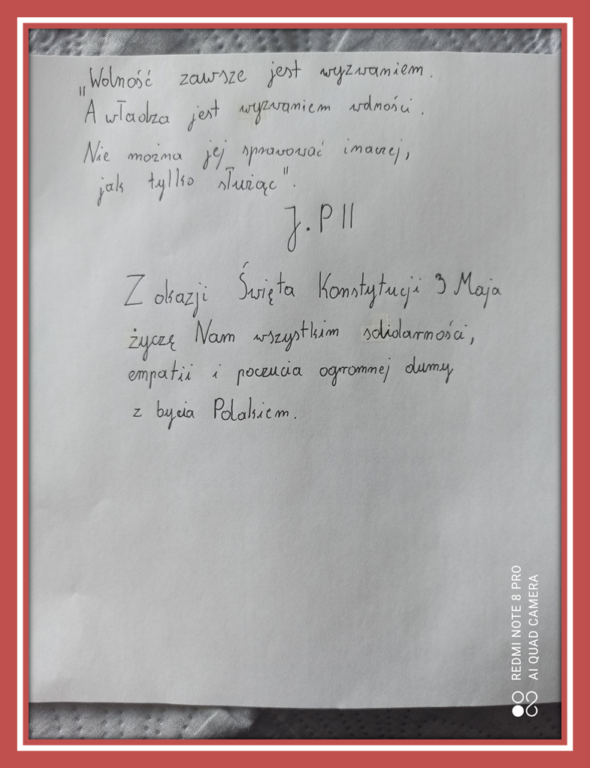 „Wolność zawsze jest wyzwaniem.
A władza jest wyzwaniem wolności.
Nie można jej sprawować inaczej,
jak tylko służąc".
J.P II
Z okazji Święta Konstytucji 3 Maja
życzę Nam wszystkim solidarności,
empatii i poczucia ogromnej dumy
z bycia Polakiem.
REDMI NOTE 8 PRO
AI QUAD CAMERA